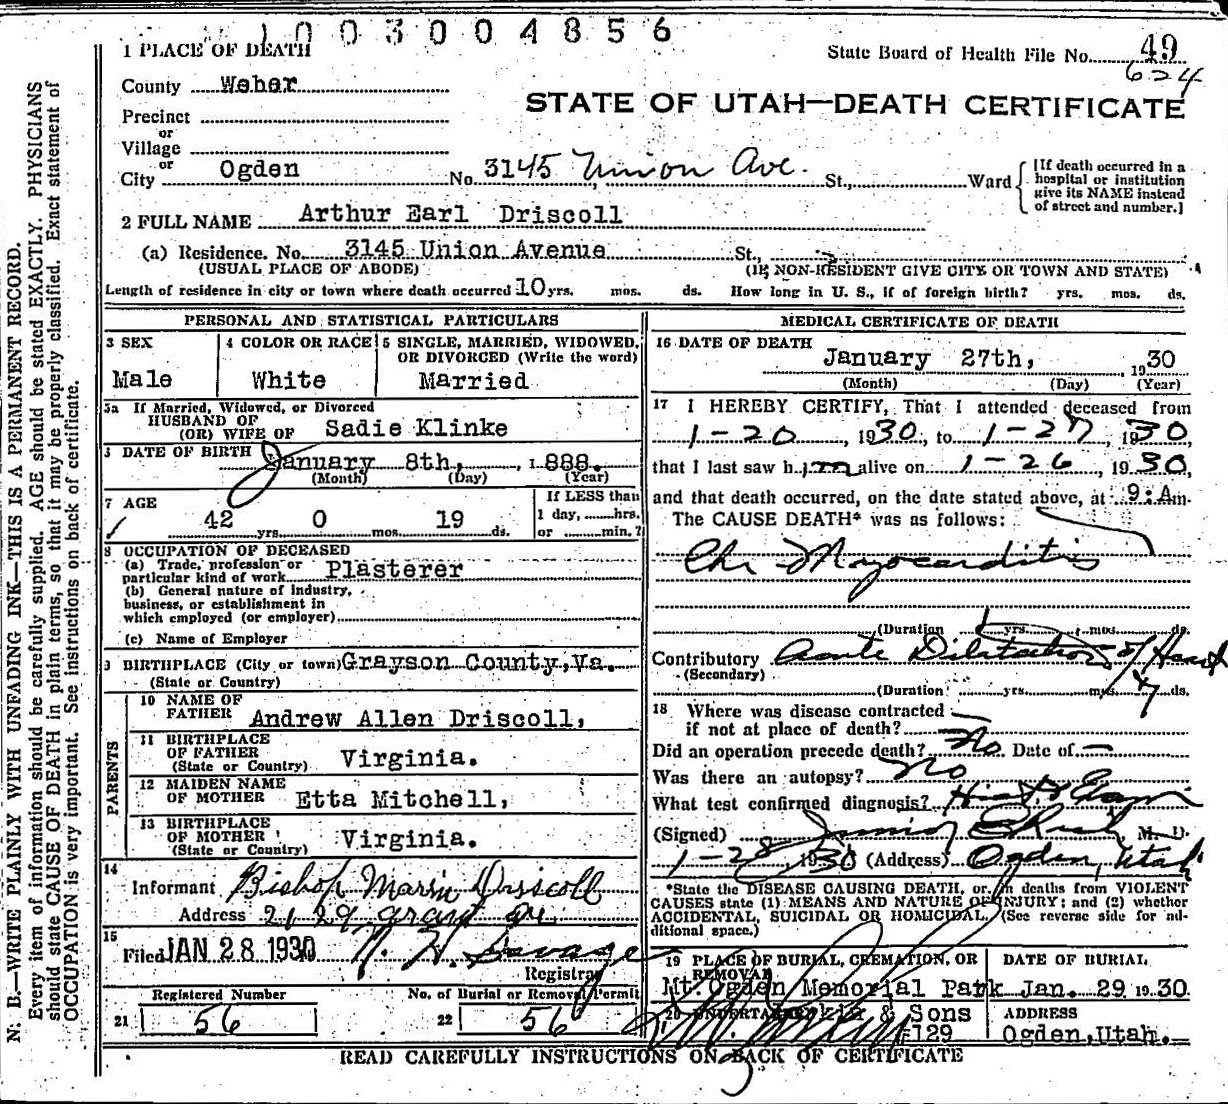 1003004856
1 PLACE OF DEATH
State Board of Health File No. 49
624
County Weber
STATE OF UTAH—DEATH CERTIFICATE
Precinct
or
Village
or
City Ogden No. 3145 Union Ave. St., Ward
[If death occurred in a
hospital or institution
give its NAME instead
of street and number.]
2 FULL NAME Arthur Earl Driscoll
(a) Residence. No. 3145 Union Avenue St.,
(USUAL PLACE OF ABODE) (IF NON-RESIDENT GIVE CITY OR TOWN AND STATE)
Length of residence in city or town where death occurred 10 yrs. mos. ds. How long in U. S., if of foreign birth? yrs. mos. ds.
PERSONAL AND STATISTICAL PARTICULARS
3 SEX
Male
4 COLOR OR RACE
White
5 SINGLE, MARRIED, WIDOWED,
OR DIVORCED (Write the word)
Married
5a If Married, Widowed, or Divorced
HUSBAND OF
(OR) WIFE OF Sadie Klinke
DATE OF BIRTH January 8th, 1888.
(Month) (Day) (Year)
7 AGE
42 yrs. 0 mos. 19 ds.
If LESS than
1 day, hrs.
or min.?
8 OCCUPATION OF DECEASED
(a) Trade, profession or
particular kind of work Plasterer
(b) General nature of industry,
business, or establishment in
which employed (or employer)
(c) Name of Employer
9 BIRTHPLACE (City or town) Grayson County, Va.
(State or Country)
PARENTS
10 NAME OF
FATHER Andrew Allen Driscoll,
11 BIRTHPLACE
OF FATHER
(State or Country) Virginia.
12 MAIDEN NAME
OF MOTHER Etta Mitchell,
13 BIRTHPLACE
OF MOTHER
(State or Country) Virginia.
14
Informant Bishop Driscoll
Address 2129 Grant Ave
15
Filed JAN 28 1930 Savage
Registrar
Registered Number
21 56
No. of Burial or Removal Permit
22 56
MEDICAL CERTIFICATE OF DEATH
16 DATE OF DEATH
January 27th, 1930
(Month) (Day) (Year)
17 I HEREBY CERTIFY, That I attended deceased from
1-20, 1930, to 1-27, 1930,
that I last saw him alive on 1-26, 1930,
and that death occurred, on the date stated above, at 9:Am.
The CAUSE DEATH* was as follows:
Chr Myocarditis
(Duration yrs. mos. ds.
Contributory Acute Dilatation of Heart
(Secondary)
(Duration yrs. mos. 7 ds.
18 Where was disease contracted
if not at place of death?
Did an operation precede death? No Date of —
Was there an autopsy? No
What test confirmed diagnosis?
(Signed) M. D.
1-28 1930 (Address) Ogden, Utah
*State the DISEASE CAUSING DEATH, or, in deaths from VIOLENT
CAUSES state (1) MEANS AND NATURE OF INJURY; and (2) whether
ACCIDENTAL, SUICIDAL OR HOMICIDAL. (See reverse side for ad-
ditional space.)
19 PLACE OF BURIAL, CREMATION, OR
REMOVAL
Mt. Ogden Memorial Park
DATE OF BURIAL
Jan. 29 1930.
20 UNDERTAKER & Sons
#129
ADDRESS
Ogden, Utah.
READ CAREFULLY INSTRUCTIONS ON BACK OF CERTIFICATE
N. B.—WRITE PLAINLY WITH UNFADING INK—THIS IS A PERMANENT RECORD.
Every item of information should be carefully supplied. AGE should be stated EXACTLY. PHYSICIANS
should state CAUSE OF DEATH in plain terms, so that it may be properly classified. Exact statement of
OCCUPATION is very important. See instructions on back of certificate.